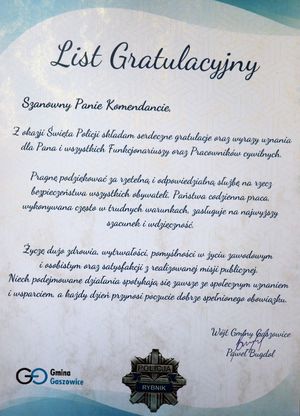 List Gratulacyjny
Szanowny Panie Komendancie,
Z okazji Święta Policji składam serdeczne gratulacje oraz wyrazy uznania
dla Pana i wszystkich Funkcjonariuszy oraz Pracowników cywilnych.
Pragnę podziękować za rzetelną i odpowiedzialną służbę na rzecz
bezpieczeństwa wszystkich obywateli. Państwa codzienna praca,
wykonywana często w trudnych warunkach, zasługuje na najwyższy
szacunek i wdzięczność.
Życzę dużo zdrowia, wytrwałości, pomyślności w życiu zawodowym
i osobistym oraz satysfakcji z realizowanej misji publicznej.
Niech podejmowane działania spotykają się zawsze ze społecznym uznaniem
i wsparciem, a każdy dzień przynosi poczucie dobrze spełnionego obowiązku.
Wójt Gminy Gaszowice
Paweł Bugdol
Gmina
Gaszowice
POLICJA
RYBNIK